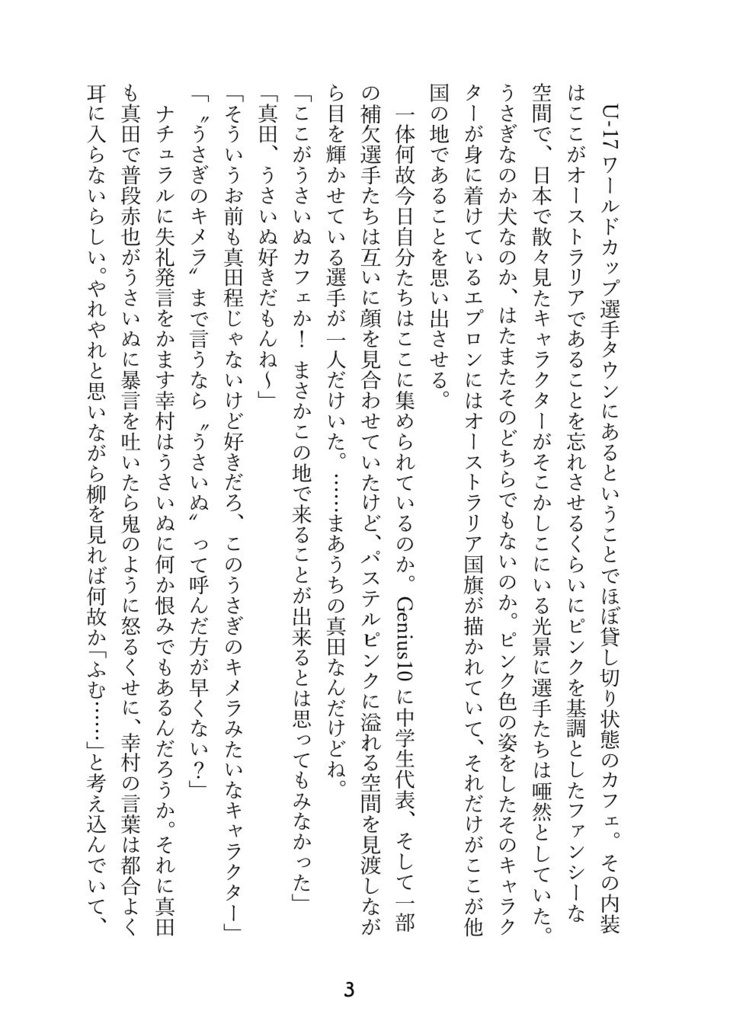 U-17 ワールドカップ選手タウンにあるということでほぼ貸し切り状態のカフェ。その内装
はここがオーストラリアであることを忘れさせるくらいにピンクを基調としたファンシーな
空間で、日本で散々見たキャラクターがそこかしこにいる光景に選手たちは唖然としていた。
うさぎなのか犬なのか、はたまたそのどちらでもないのか。ピンク色の姿をしたそのキャラク
ターが身に着けているエプロンにはオーストラリア国旗が描かれていて、それだけがここが他
国の地であることを思い出させる。
　一体何故今日自分たちはここに集められているのか。Genius10 に中学生代表、そして一部
の補欠選手たちは互いに顔を見合わせていたけど、パステルピンクに溢れる空間を見渡しなが
ら目を輝かせている選手が一人だけいた。……まあうちの真田なんだけどね。
「ここがうさいぬカフェか！ まさかこの地で来ることが出来るとは思ってもみなかった」
「真田、うさいぬ好きだもんね〜」
「そういうお前も真田程じゃないけど好きだろ、このうさぎのキメラみたいなキャラクター」
「〝うさぎのキメラ〟まで言うなら〝うさいぬ〟って呼んだ方が早くない？」
　ナチュラルに失礼発言をかます幸村はうさいぬに何か恨みでもあるんだろうか。それに真田
も真田で普段赤也がうさいぬに暴言を吐いたら鬼のように怒るくせに、幸村の言葉は都合よく
耳に入らないらしい。やれやれと思いながら柳を見れば何故か「ふむ……」と考え込んでいて、
3